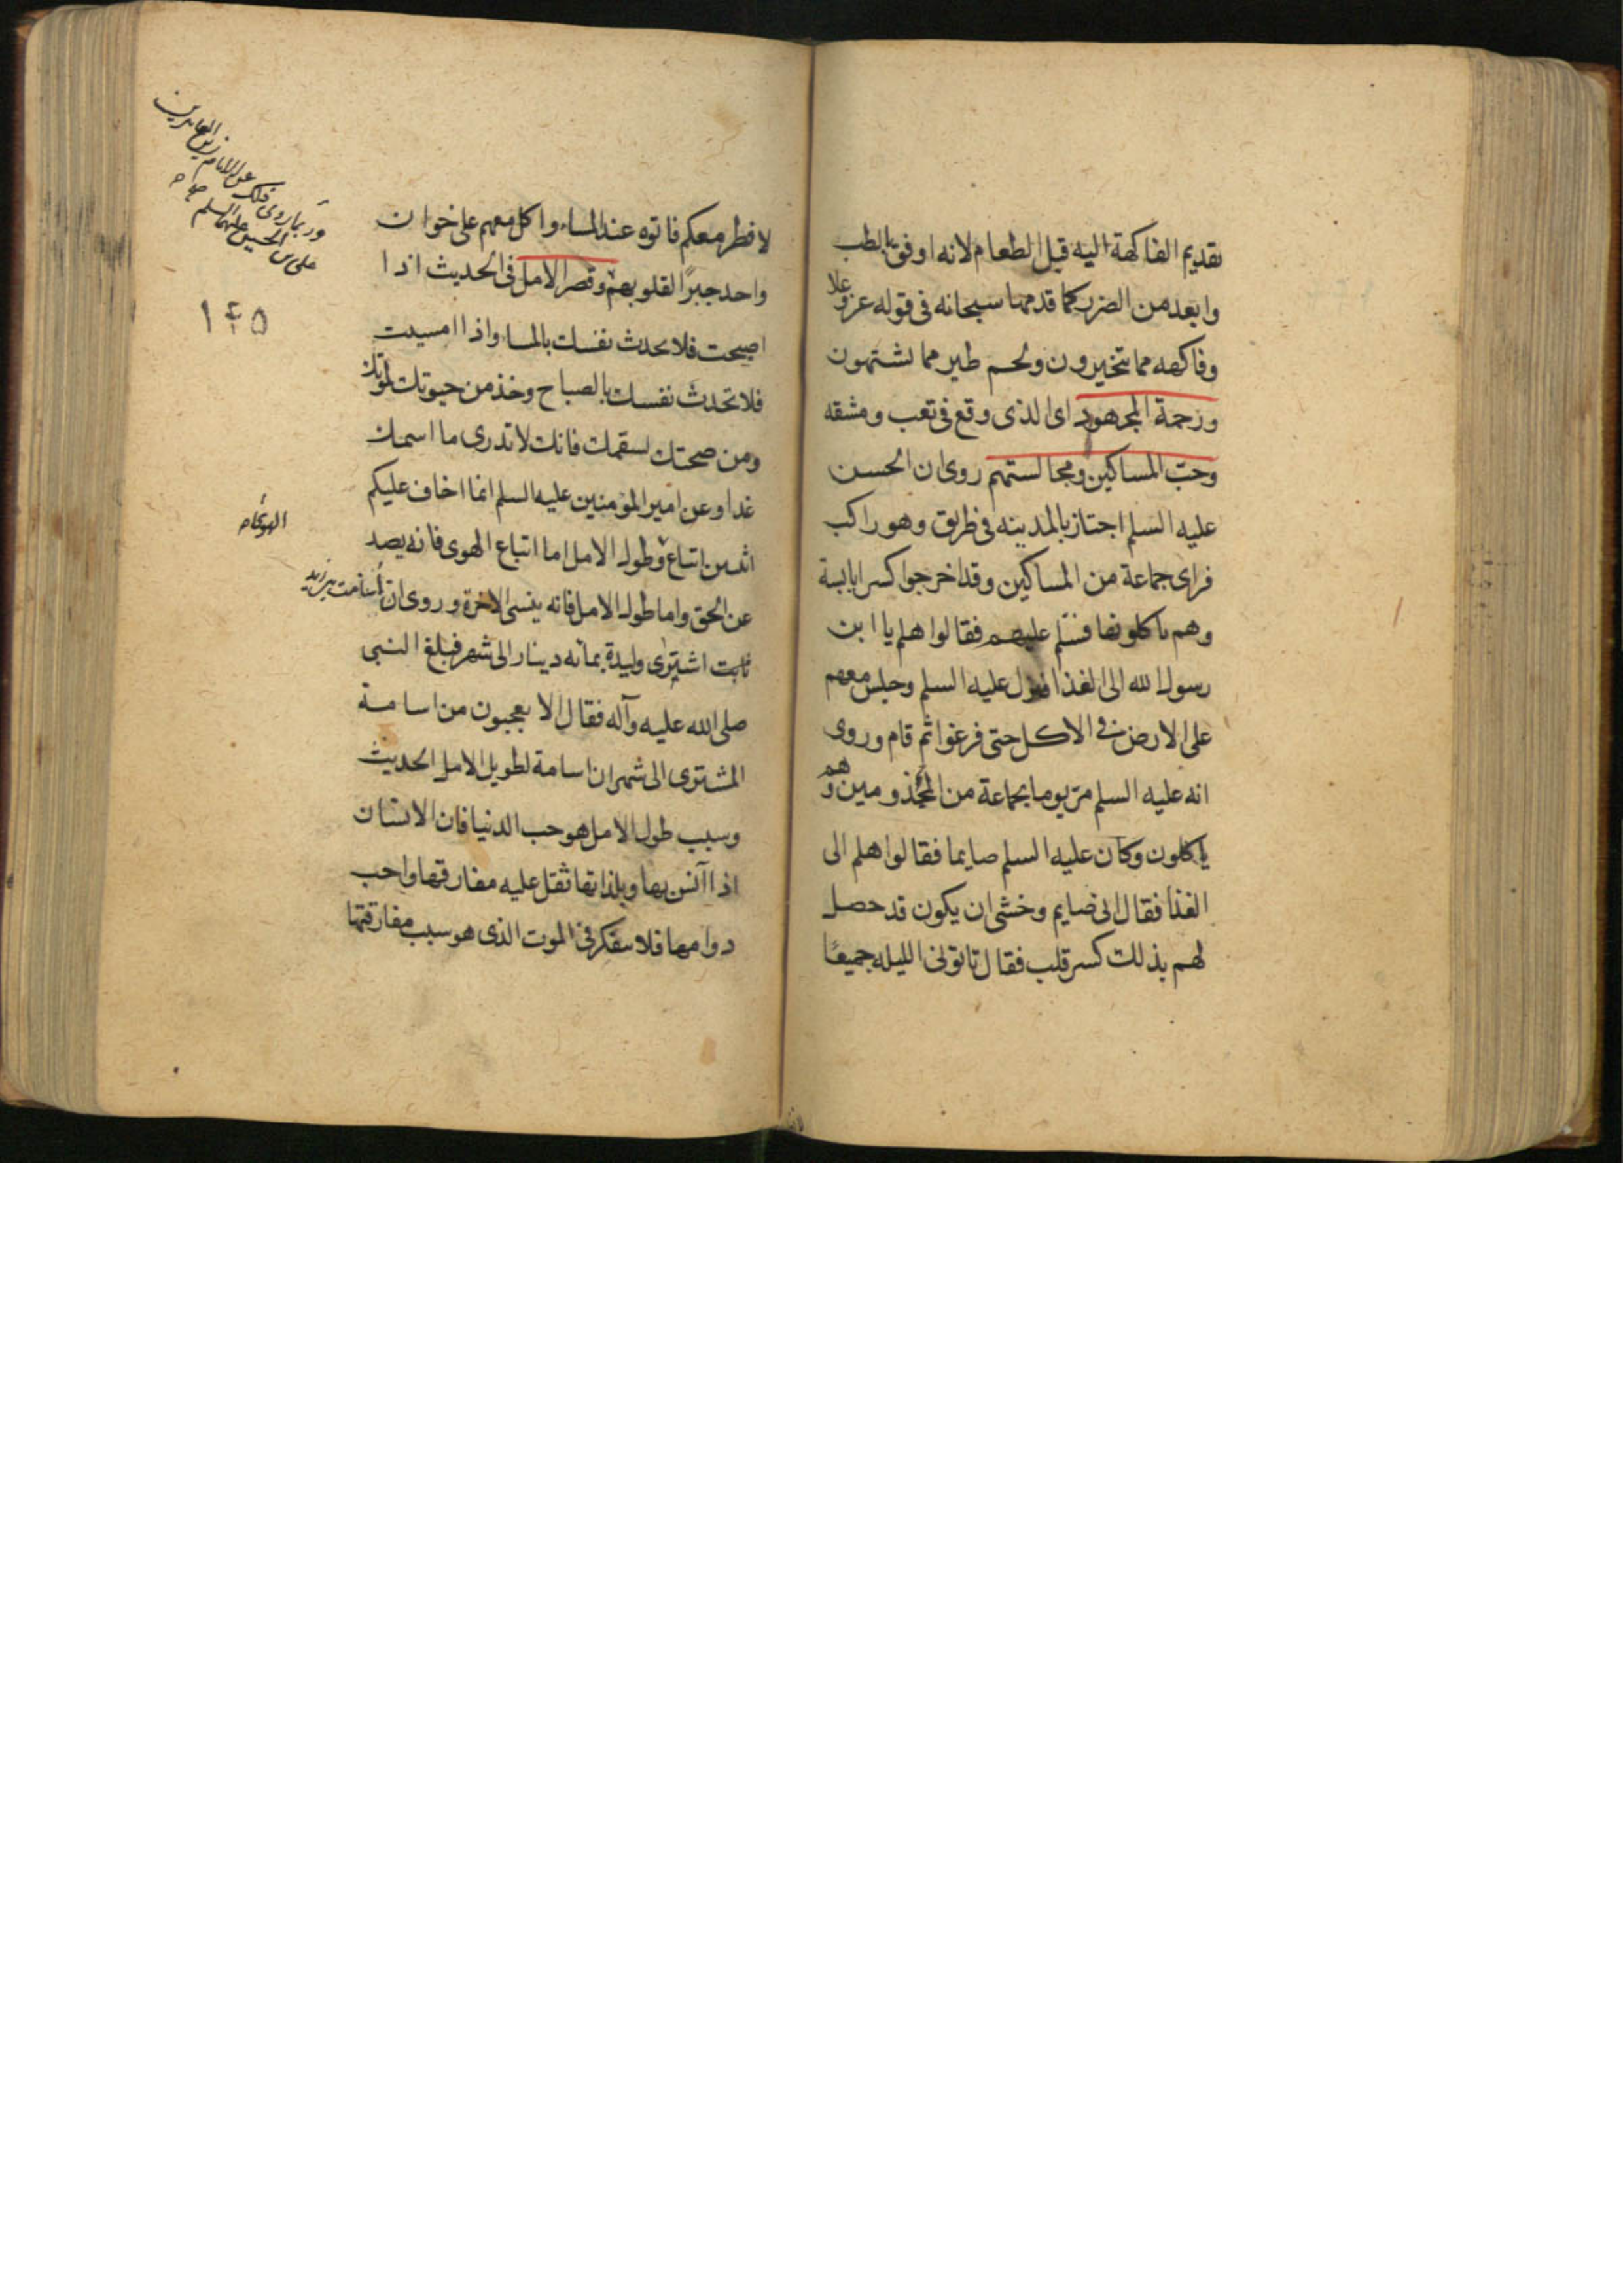 تقديم الفاكهة اليه قبل الطعام لانه اوفق بالطب
وابعد من الضرر كما قدمها سبحانه فى قوله عز وعلا
وفاكهه مما يتخيرون ولحم طير مما يشتهون
ورحمة المجهود اى الذى وقع فى تعب ومشقه
وحب المساكين ومجالستهم روى ان الحسن
عليه السلم اجتاز بالمدينه فى طريق وهو راكب
فراى جماعة من المساكين وقد اخرجوا كسرا يابسة
وهم ياكلونها فسلم عليهم فقالوا هلم يا ابن
رسول الله الى الغذا فنزل عليه السلم وجلس معهم
على الارض فى الاكل حتى فرغوا ثم قام وروى
انه عليه السلم مر يوما بجماعة من المجذومين وهم
ياكلون وكان عليه السلم صايما فقالوا هلم الى
الغذا فقال انى صايم وخشى ان يكون قد حصل
لهم بذلك كسر قلب فقال تاتونى الليله جميعًا
لافطر معكم فاتوه عند المساء واكل معهم على خوان
واحد جبرًا لقلوبهم وقصر الامل فى الحديث اذا
اصبحت فلا تحدث نفسك بالمساء واذا امسيت
فلا تحدث نفسك بالصباح وخذ من حيوتك لموتك
ومن صحتك لسقمك فانك لا تدرى ما اسمك
غدا وعن امير المؤمنين عليه السلم انما اخاف عليكم
اثنين اتباع وطول الامل اما اتباع الهوى فانه يصد
عن الحق واما طول الامل فانه ينسى الاخرة وروى ان اسامة بن زيد
ثابت اشترى وليدة بمائه دينار الى شهر فبلغ النبى
صلى الله عليه وآله فقال الا تعجبون من اسامة
المشترى الى شهر ان اسامة لطويل الامل الحديث
وسبب طول الامل هو حب الدنيا فان الانسان
اذا آنس بها وبلذاتها ثقل عليه مفارقتها واحب
دوامها فلا يتفكر فى الموت الذى هو سبب مفارقتها
وربما روى ذلك عن الامام زين العابدين
على بن الحسين عليهما السلم
۱۴۵
الهوى